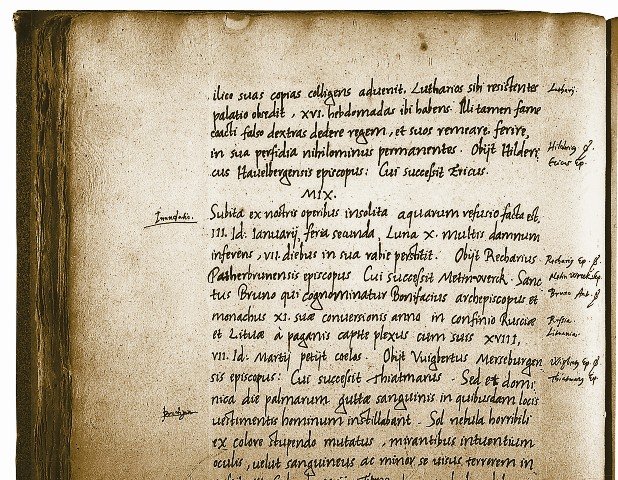 ilico suas copias colligens advenit. Lutharios sibi resistentes
palatio obsedit, XVI. hebdomadas ibi habens. Illi tamen fame
coacti falso dextras dedere regem, et suos remeare ferire,
in sua perfidia nihilominus permanentes. Obijt Hilderi
cus Havelbergensis episcopus: Cui successit Ericus.
MIX.
Subita ex nostris operibus insolita aquarum refusio facta est.
III. Id: Ianuarij, feria secunda, Luna X. multis damnum
inferens, VII. diebus in sua rabie perstitit. Obijt Recharius
Patherbrunensis episcopus. Cui successit Meinwerck. Sanc
tus Bruno qui cognominatur Bonifacius archepiscopus et
monachus XI. suæ conversionis anno in confinio Rusciæ
et Lituæ à paganis capite plexus cum suis XVIII,
VII. Id: Martij petijt coelos. Obijt Vuigbertus Merseburgen
sis episcopus: Cui successit Thiatmarus. Sed et domi
nica die palmarum guttæ sanguinis in quibusdam locis
vestimentis hominum instillabant. Sol nebula horribili
ex colore stupendo mutatus, mirantibus intuentium
oculis, velut sanguineus ac minor se visus terrorem in
Lutharij.
Ericus Ep.
Inundatio.
Recharius Ep.
Bruno
Russia
Lituania.
Thiatmarus Ep.